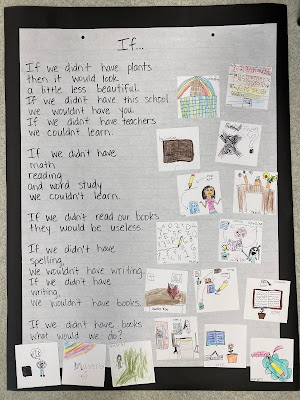 If...
If we didn't have plants
then it would look
a little less beautiful.
If we didn't have this school
we wouldn't have you.
If we didn't have teachers
we couldn't learn.
If we didn't have
math,
reading,
and word study
we couldn't learn.
If we didn't read our books
they would be useless.
If we didn't have
spelling,
we wouldn't have writing.
If we didn't have
writing,
we wouldn't have books.
If we didn't have books
what would we do?